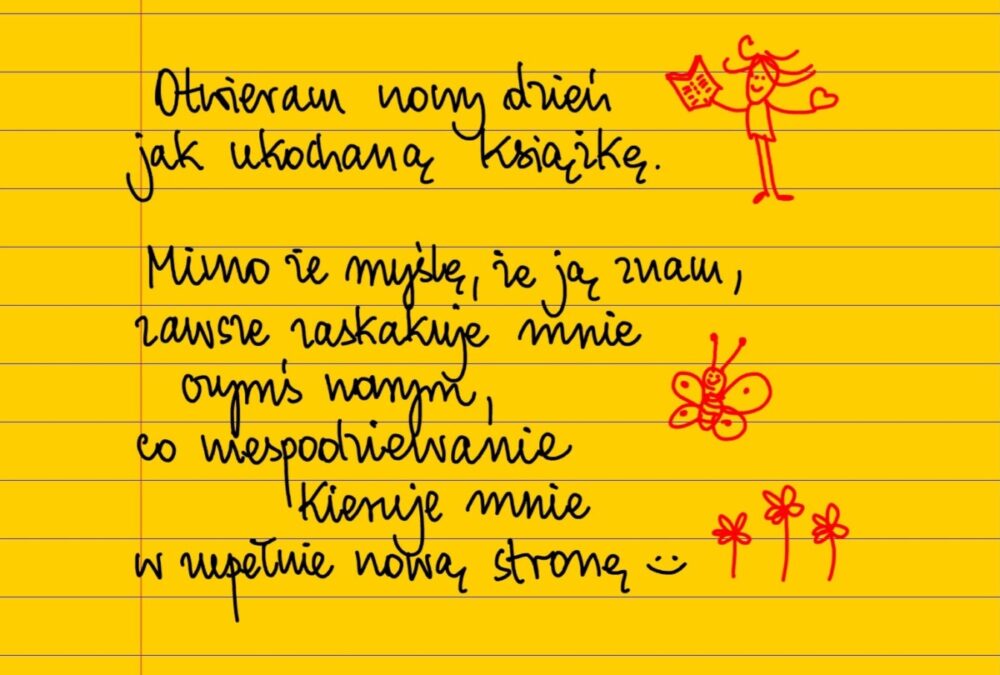 Otwieram nowy dzień
jak ukochaną książkę.
Mimo że myślę, że ją znam,
zawsze zaskakuje mnie
czymś nowym,
co niespodziewanie
kieruje mnie
w zupełnie nową stronę :)